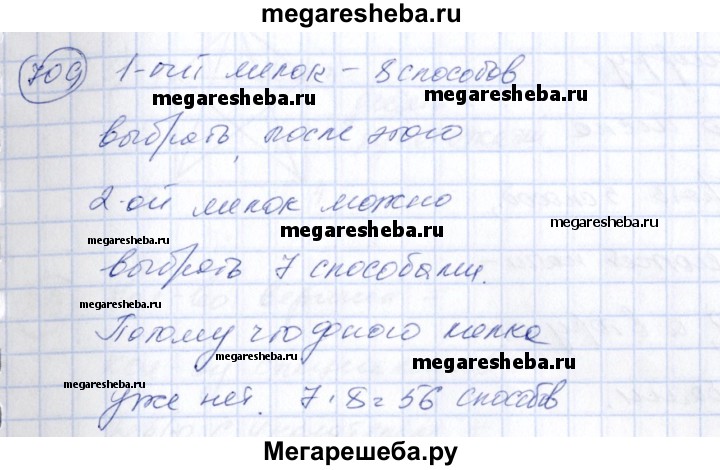 megaresheba.ru
709 1-ый мелок – 8 способов
megaresheba.ru megaresheba.ru
выбрать, после этого
2-ой мелок можно
megaresheba.ru megaresheba.ru megaresheba.ru
выбрать 7 способами.
Потому что одного мелка
megaresheba.ru megaresheba.ru megaresheba.ru
уже нет. 7·8=56 способов
Мегарешеба.ру